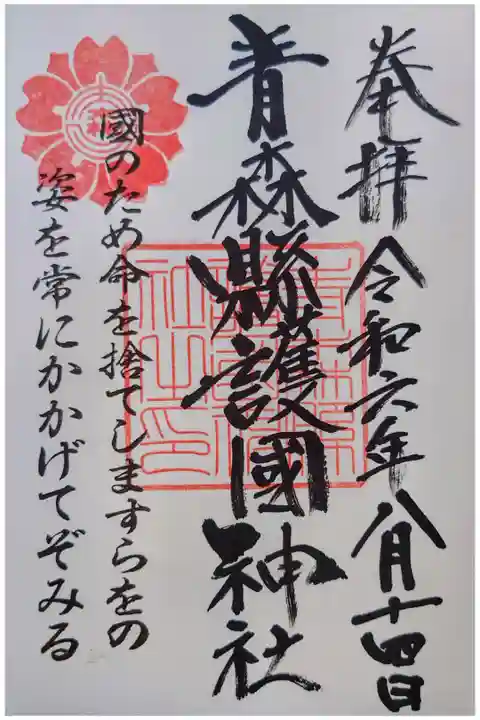 奉拝 令和六年八月十四日
青森縣護國神社
國のため命を捨てしますらをの
姿を常にかかげてぞみる